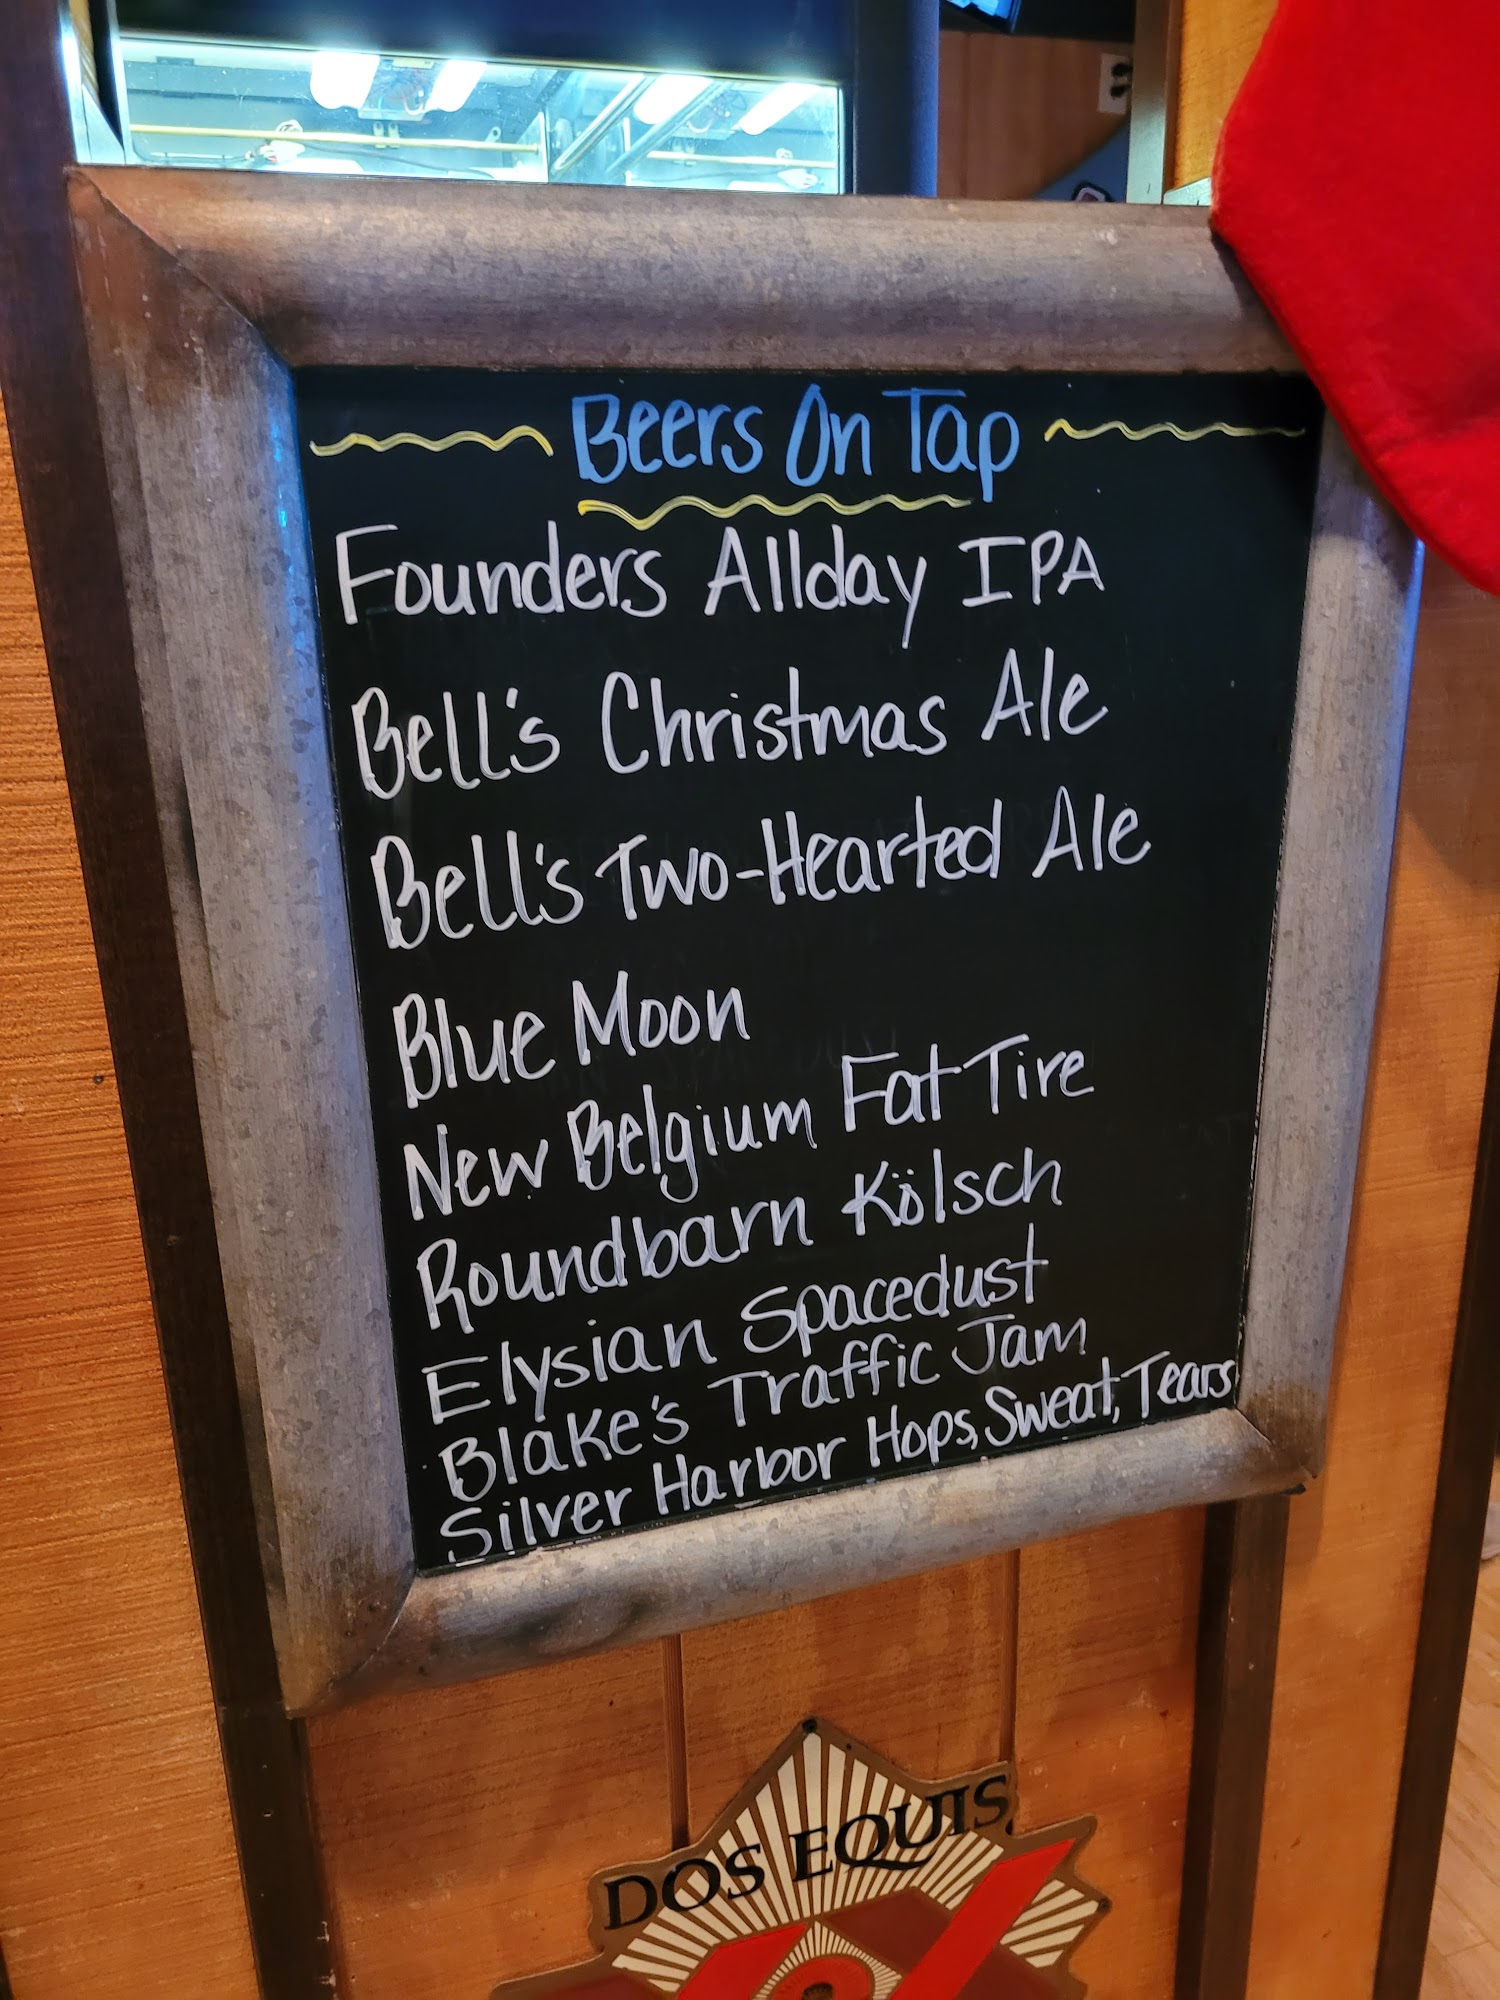 Beers On Tap
Founders Allday IPA
Bell's Christmas Ale
Bell's Two-Hearted Ale
Blue Moon
New Belgium Fat Tire
Roundbarn Kölsch
Elysian Spacedust
Blake's Traffic Jam
Silver Harbor Hops, Sweat, Tears
DOS EQUIS